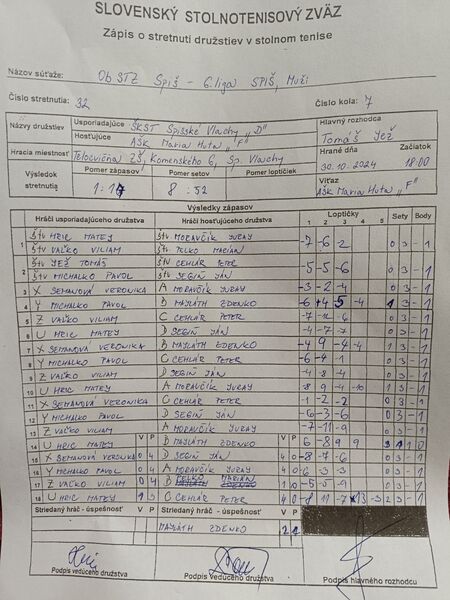 SLOVENSKÝ STOLNOTENISOVÝ ZVÄZ
Zápis o stretnutí družstiev v stolnom tenise
Názov súťaže: ObSTZ Spiš - 6.liga SPIŠ, Muži
Číslo stretnutia: 32 Číslo kola: 7
Názvy družstiev Usporiadajúce ŠKST Spišské Vlachy "D" Hlavný rozhodca
Hosťujúce AŠK Maria Huta "F" Tomáš Jež
Hracia miestnosť Telocvičňa ZŠ, Komenského 6, Sp. Vlachy Hrané dňa Začiatok
30.10.2024 18:00
Výsledok stretnutia Pomer zápasov Pomer setov Pomer loptičiek Víťaz
1:17 8:52 AŠK Maria Huta "F"
Výsledky zápasov
Hráči usporiadajúceho družstva Hráči hosťujúceho družstva Loptičky Sety Body
1 2 3 4 5
1 štv HRIC MATEJ štv MORAVČÍK JURAJ -7 -6 -2 0 3 - 1
štv VAĽKO VILIAM štv PEĽKO MARIÁN
2 štv JEŽ TOMÁŠ štv CEHLÁR PETER -5 -5 -6 0 3 - 1
štv MICHALKO PAVOL štv SEGIŇ JÁN
3 X SEMANOVÁ VERONIKA A MORAVČÍK JURAJ -3 -2 -4 0 3 - 1
4 Y MICHALKO PAVOL B MAYLÁTH ZDENKO -4 1 3 - 1
5 Z VAĽKO VILIAM C CEHLÁR PETER 0 3 - 1
6 U HRIC MATEJ D SEGIŇ JÁN -4 -7 -7 0 3 - 1
7 X SEMANOVÁ VERONIKA B MAYLÁTH ZDENKO -4 9 -4 -4 1 3 - 1
8 Y MICHALKO PAVOL C CEHLÁR PETER -6 -4 -1 0 3 - 1
9 Z VAĽKO VILIAM D SEGIŇ JÁN -4 -8 -4 0 3 - 1
10 U HRIC MATEJ A MORAVČÍK JURAJ -8 9 -4 -10 1 3 - 1
11 X SEMANOVÁ VERONIKA C CEHLÁR PETER -1 -2 -2 0 3 - 1
12 Y MICHALKO PAVOL D SEGIŇ JÁN -6 -3 -6 0 3 - 1
13 Z VAĽKO VILIAM A MORAVČÍK JURAJ -7 -11 -9 0 3 - 1
14 U HRIC MATEJ V P B MAYLÁTH ZDENKO V P 6 -8 9 9 3 1 1 0
15 X SEMANOVÁ VERONIKA 0 4 D SEGIŇ JÁN 4 0 -8 -7 -6 0 3 - 1
16 Y MICHALKO PAVOL 0 4 A MORAVČÍK JURAJ 4 0 -6 -3 -3 0 3 - 1
17 Z VAĽKO VILIAM 0 4 B PEĽKO MARIÁN 1 0 -5 -5 -9 0 3 - 1
18 U HRIC MATEJ 1 3 C CEHLÁR PETER 4 0 -8 11 -7 13 -3 2 3 - 1
Striedaný hráč - úspešnosť V P Striedaný hráč - úspešnosť V P
MAYLÁTH ZDENKO 2
Podpis vedúceho družstva Podpis vedúceho družstva Podpis hlavného rozhodcu